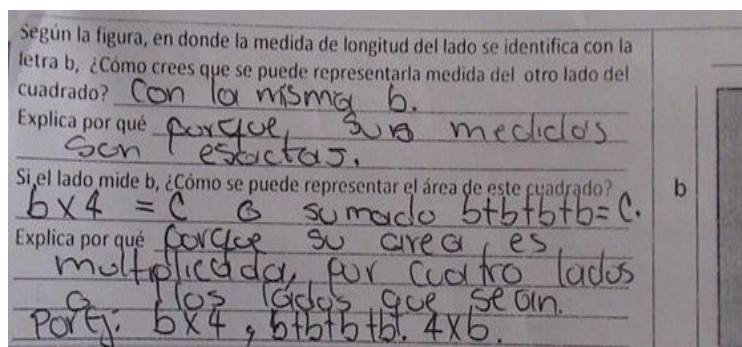 Según la figura, en donde la medida de longitud del lado se identifica con la
letra b, ¿Cómo crees que se puede representarla medida del otro lado del
cuadrado? Con la misma b.
Explica por qué porque, sus medidas
son esactas.
Si el lado mide b, ¿Cómo se puede representar el área de este cuadrado?
b x 4 = C O sumado b+b+b+b=C.
Explica por qué porque su area es
multiplicada, por cuatro lados
o los lados que sean.
Por Ej: b x 4, b+b+b+b. 4xb.
b